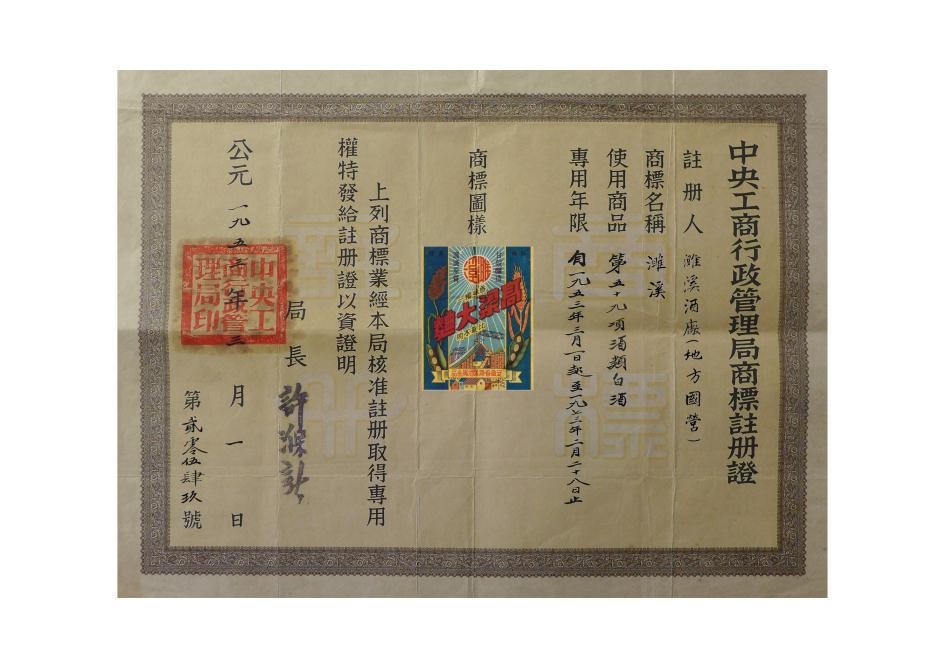 中央工商行政管理局商標註册證
註册人 濉溪酒廠(地方國營)
商標名稱 濉溪
使用商品 第五十九項酒類白酒
專用年限 自一九五三年三月一日起至一九七三年二月二十八日止
商標圖樣
高粱大麯
上列商標業經本局核准註册取得專用
權特發給註册證以資證明
局長
公元一九五三年三月一日
中央工
商行管
理局印
第貳零伍肆玖號